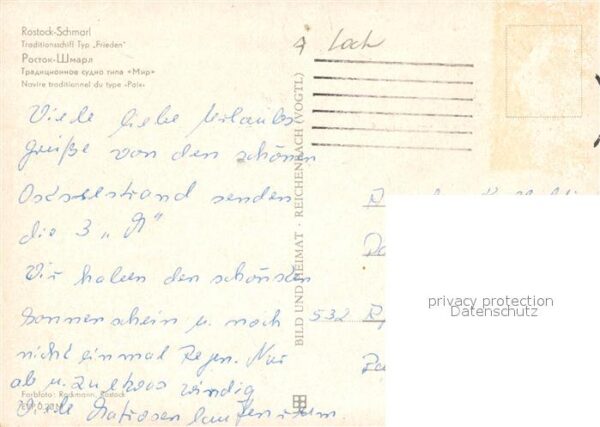 Rostock-Schmarl
Traditionsschiff Typ „Frieden"
Росток-Шмарл
Традиционное судно типа «Мир»
Navire traditionnel du type «Paix»
4 Loch
Viele liebe Urlaubs
grüße von dem schönen
Ostseestrand senden
die 3 „M"
Wir haben den schönsten
Sonnenschein u. noch
nicht einmal Regen. Nur
ab u. zu etwas windig
Viele Matrosen laufen rum.
Farbfoto: Rockmann, Rostock
EVP 0,20 M
BILD UND HEIMAT · REICHENBACH (VOGTL)
532
privacy protection
Datenschutz